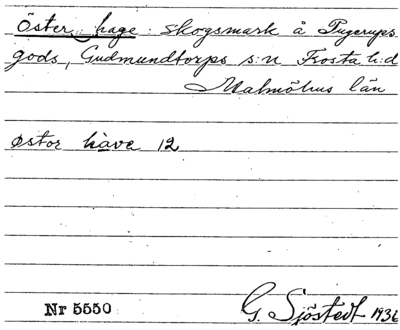 Öster hage : skogsmark å Tugerups
gods, Gudmundtorps s:n Frosta h:d
Malmöhus län
østor hava 12
Nr 5550
G. Sjöstedt 1936